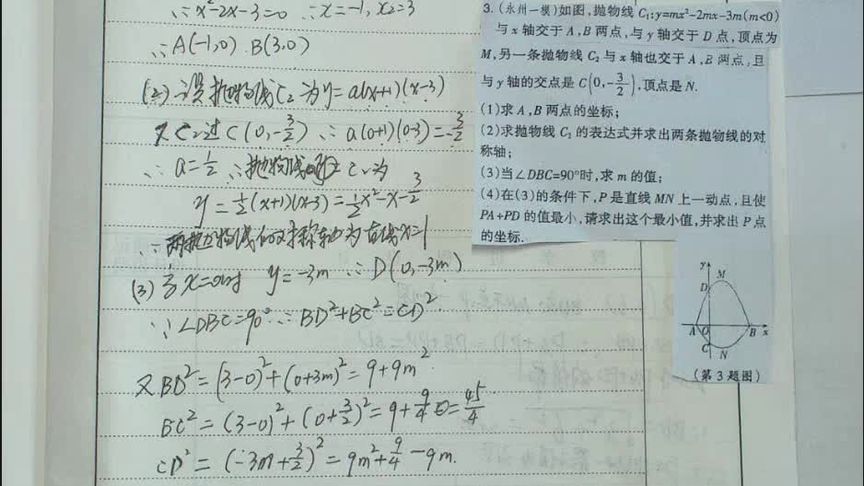 ∴x²-2x-3=0 ∴x=-1, x₂=3
∴A(-1,0) B(3,0)
(2) 设抛物线C₂为y=a(x+1)(x-3)
又C₂过C(0,-3/2) ∴a(0+1)(0-3)=-3/2
∴a=1/2 ∴抛物线C₂为
y=1/2(x+1)(x-3)=1/2x²-x-3/2
∴两抛物线的对称轴为直线x=1
(3) 当x=0时 y=-3m ∴D(0,-3m)
∵∠DBC=90° ∴BD²+BC²=CD²
又BD²=(3-0)²+(0+3m)²=9+9m²
BC²=(3-0)²+(0+3/2)²=9+9/4=45/4
CD²=(-3m+3/2)²=9m²+9/4-9m.
3.(永州一模)如图,抛物线C₁:y=mx²-2mx-3m(m<0)
与x轴交于A,B两点,与y轴交于D点,顶点为
M,另一条抛物线C₂与x轴也交于A,B两点,且
与y轴的交点是C(0,-3/2),顶点是N.
(1)求A,B两点的坐标;
(2)求抛物线C₂的表达式并求出两条抛物线的对
称轴;
(3)当∠DBC=90°时,求m的值;
(4)在(3)的条件下,P是直线MN上一动点,且使
PA+PD的值最小,请求出这个最小值,并求出P点
的坐标.
y
M
D
A O B x
C
N
(第3题图)